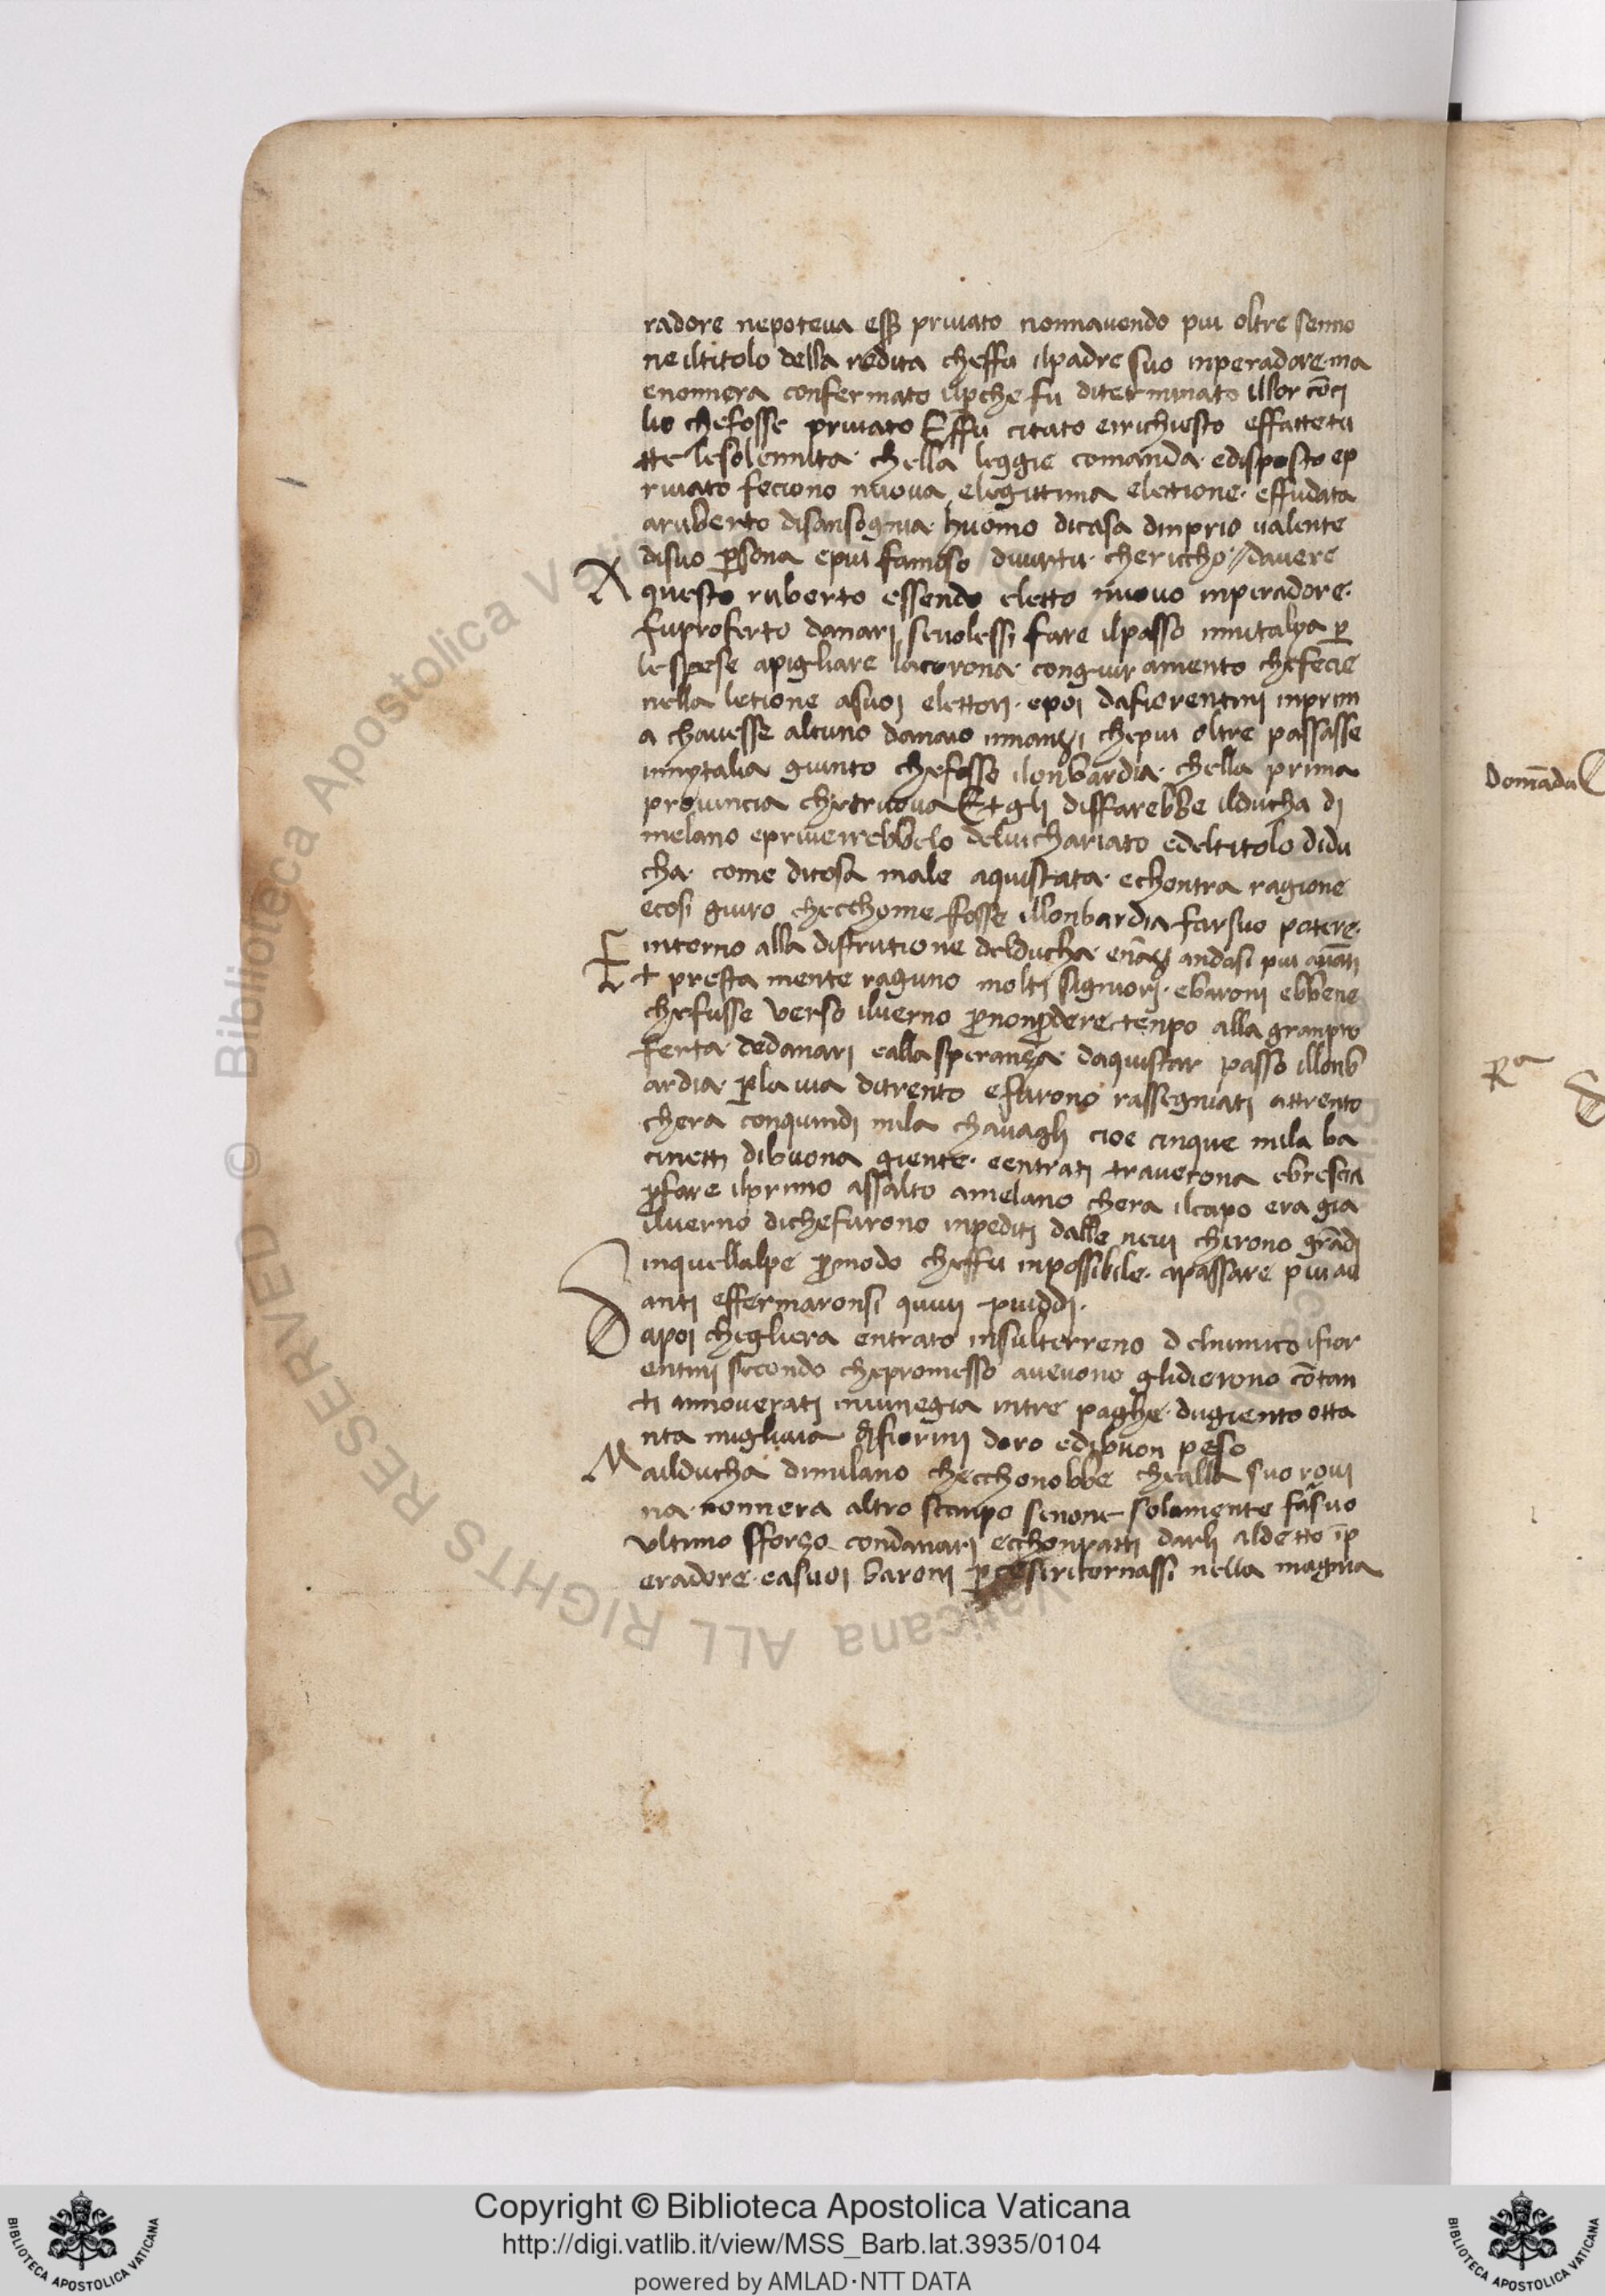 radore nepoteua eſſ priuato nonnauendo piu oltre senno
ne iltitolo della redita cheffu ilpadre suo inperadore ma
enonnera confermato ilp che fu diterminato illor cōci
lio chefosse priuato Effu citato erichiesto effatte tu
tte lesolennita chella leggie comanda edisposto ep
riuato feciono nuoua elegittima eletione effudata
aruberto disansognia huomo dicasa dinprio ualente
disuo ꝑsona epiu famoso diuirtu chericcho dauere
A questo ruberto essendo eletto nuouo inperadore
fuproferto danari seuolessi fare ilpasso initalya ꝑ
lespese apigliare lacorona conguiramento chefecie
nella letione asuoj elettorj epoi dafiorentini inprim
a chauesse alcuno danaio innanzi chepiu oltre passasse
innytalia giunto chefosse ilonbardia chella prima
prouincia chetruoua Et gli diffarebbe ilducha dj
melano epriuerrebbelo deluichariato edeltitolo didu
cha come dicosa male aquistata echontra ragione
ecosi giuro checchome ffosse illonbardia farsuo potere
intorno alla distrutione delducha andasi piu auātj
Et presta mente raguno moltj signiorj ebaronj ebbene
chefusse verso iluerno ꝑnonꝑdere tenpo alla granpro
ferta dedanarj ealla speranza daquistar passo illonb
ardia ꝑla uia ditrento efurono rassegniatj attrento
chera conquindj mila chauaglj cioe cinque mila ba
cinettj dibuona giente eentratj trauerona ebrescia
ꝑfare ilprimo assalto amelano chera ilcapo era gia
iluerno dichefurono inpeditj dalle neui cherono grādj
inquellalpe ꝑmodo cheffu inpossibile apassare piu au
antj effermaronsi quiuj piuddj
Dapoj chegliera entrato insulterreno delnimico ifior
entinj secondo chepromesso aueuono glidierono cōtan
ti annoueratj inuinegia intre paghe dugiento otta
nta migliaia difiorinj doro edibuon peso
Mailducha dimilano checchonobbe chealla suo roui
na nonnera altro scanpo senone solamente fāsuo
vltimo sforzo condanarj ecchonpattj darlj aldetto īp
eradore easuoi baronj ꝑcesiritornassi nella magnia
Domāda
Rᵃ
Copyright © Biblioteca Apostolica Vaticana
http://digi.vatlib.it/view/MSS_Barb.lat.3935/0104
powered by AMLAD·NTT DATA